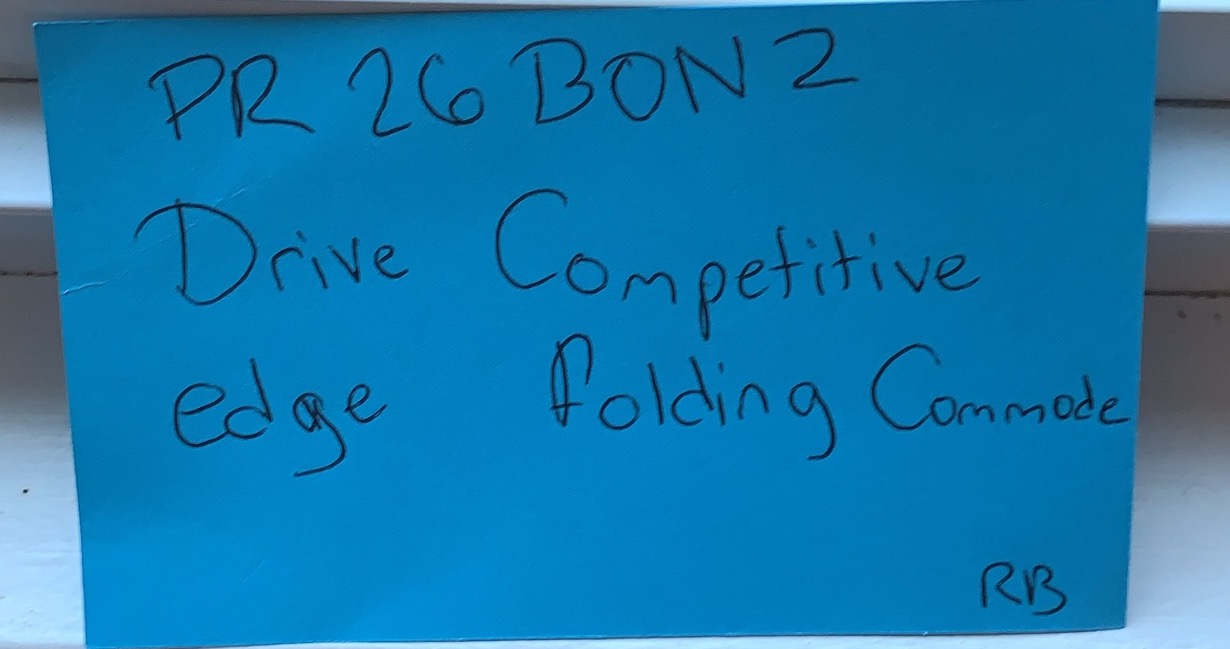 PR 26 BON 2
Drive Competitive
edge folding Commode
RB